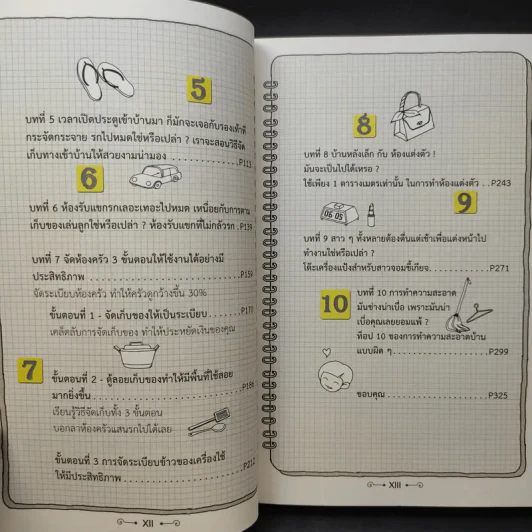 5
บทที่ 5 เวลาเปิดประตูเข้าบ้านมา ก็มักจะเจอกับรองเท้าที่
กระจัดกระจาย รกไปหมดใช่หรือเปล่า ? เราจะสอนวิธีจัด
เก็บทางเข้าบ้านให้สวยงามน่ามอง
6
บทที่ 6 ห้องรับแขกรกเลอะเทอะไปหมด เหนื่อยกับการตาม
เก็บของเล่นลูกใช่หรือเปล่า ? ห้องรับแขกที่ไม่กลัวรก
บทที่ 7 จัดห้องครัว 3 ขั้นตอนให้ใช้งานได้อย่างมี
ประสิทธิภาพ
จัดระเบียบห้องครัว ทำให้ครัวดูกว้างขึ้น 30%
ขั้นตอนที่ 1 - จัดเก็บของให้เป็นระเบียบ
เคล็ดลับการจัดเก็บของ ทำให้ประหยัดเงินของคุณ
7
ขั้นตอนที่ 2 - ตู้ลอยเก็บของทำให้มีพื้นที่ใช้สอย
มากยิ่งขึ้น
เรียนรู้วิธีจัดเก็บทั้ง 3 ขั้นตอน
บอกลาห้องครัวแสนรกไปได้เลย
ขั้นตอนที่ 3 การจัดระเบียบข้าวของเครื่องใช้
ให้มีประสิทธิภาพ
XII
8
บทที่ 8 บ้านหลังเล็ก กับ ห้องแต่งตัว !
มันจะเป็นไปได้เหรอ ?
ใช้เพียง 1 ตารางเมตรเท่านั้น ในการทำห้องแต่งตัว . .P243
9
06 05
บทที่ 9 สาว ๆ ทั้งหลายต้องตื่นแต่เช้าเพื่อแต่งหน้าไป
ทำงานใช่หรือเปล่า ?
โต๊ะเครื่องแป้งสำหรับสาวจอมขี้เกียจ. . . . . . . . . . . . .P271
10
บทที่ 10 การทำความสะอาด
มันช่างน่าเบื่อ เพราะมันน่า
เบื่อคุณเลยยอมแพ้ ?
ท็อป 10 ของการทำความสะอาดบ้าน
แบบผิด ๆ. . . . . . . . . . . . . . . . . .P299
ขอบคุณ . . . . . . . . . . . . . . . . . .P325
XIII